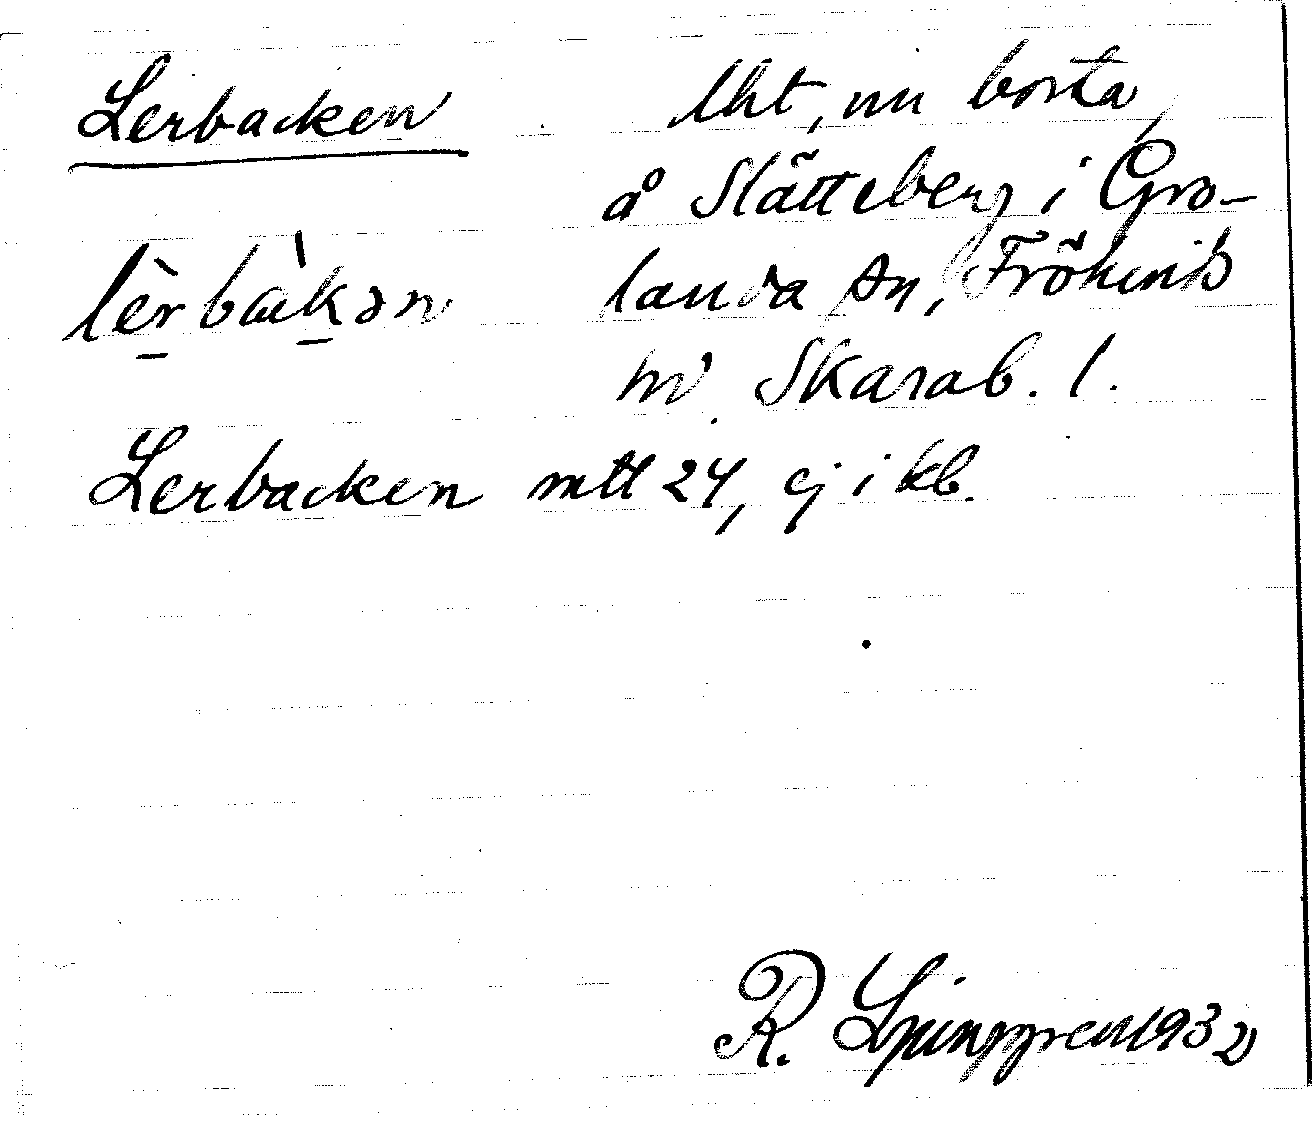 Lerbacken
lht, nu borta
å Slätteberg i Gro-
landa sn, Frökinds
hd Skarab. l.
lèrbàkən
Lerbacken mtl 24, ej i kb.
R. Ljunggren 1932